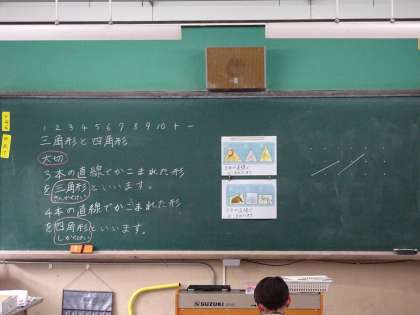 1 2 3 4 5 6 7 8 9 10 + −
三角形と四角形
大切
3本の直線でかこまれた形
を三角形といいます。
さんかくけい
4本の直線でかこまれた形
を四角形といいます。
しかくけい
SUZUKI